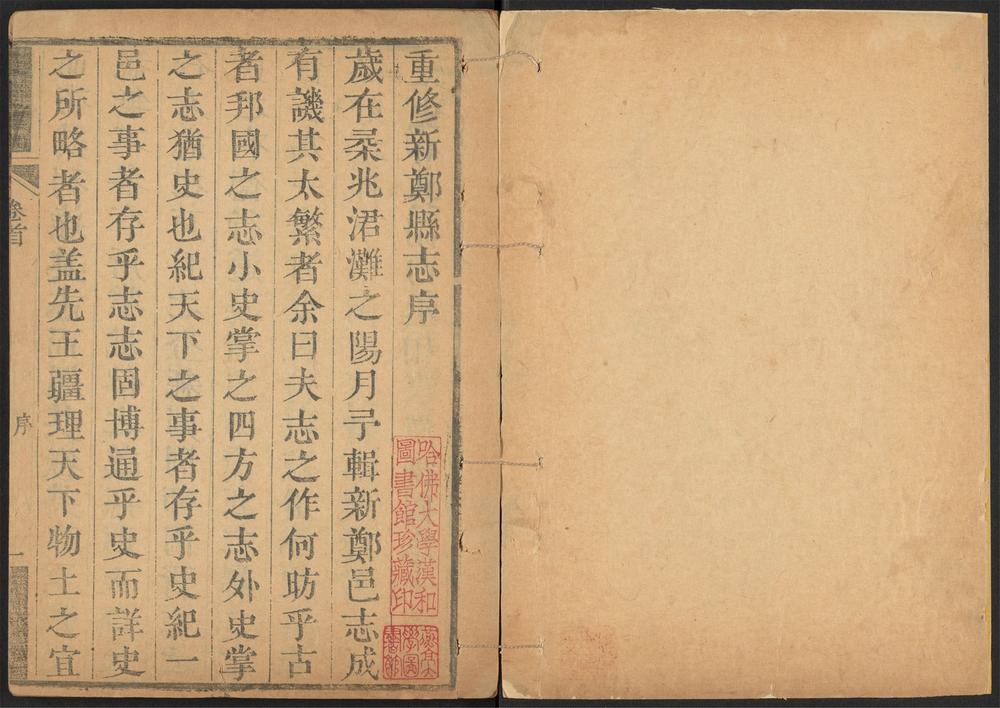 重修新鄭縣志序
歲在桒兆涒灘之陽月予輯新鄭邑志成
有譏其太繁者余曰夫志之作何昉乎古
者邦國之志小史掌之四方之志外史掌
之志猶史也紀天下之事者存乎史紀一
邑之事者存乎志志固博通乎史而詳史
之所略者也盖先王疆理天下物土之宜
卷首
序
一
哈佛大學漢和
圖書館珍藏印